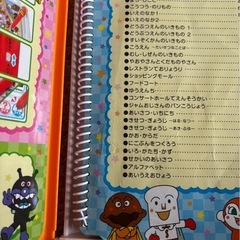 ●うつろう・のりもの
●いえのなか1
●いえのなか2
●どうぶつえんのいきもの1
●どうぶつえんのいきもの2
●すいぞくかんのいきもの
●こうえん
●むし・しぜんのいきもの
●やおやさんとくだものやさん
●レストランでおりょうり
●ショッピングモール
●フードコート
●ゆうえんち
●コンサートホールでえんそうかい
●ジャムおじさんのパンこうじょう
●あいさつ・いちにち
●きせつ・ぎょうじ ーはる・なつー
●きせつ・ぎょうじ ーあき・ふゆー
●かお・からだ
●にこぶんをつくろう
●いろ・かたち・かず
●せかいのあいさつ
●アルファベット
●あいうえおひょう